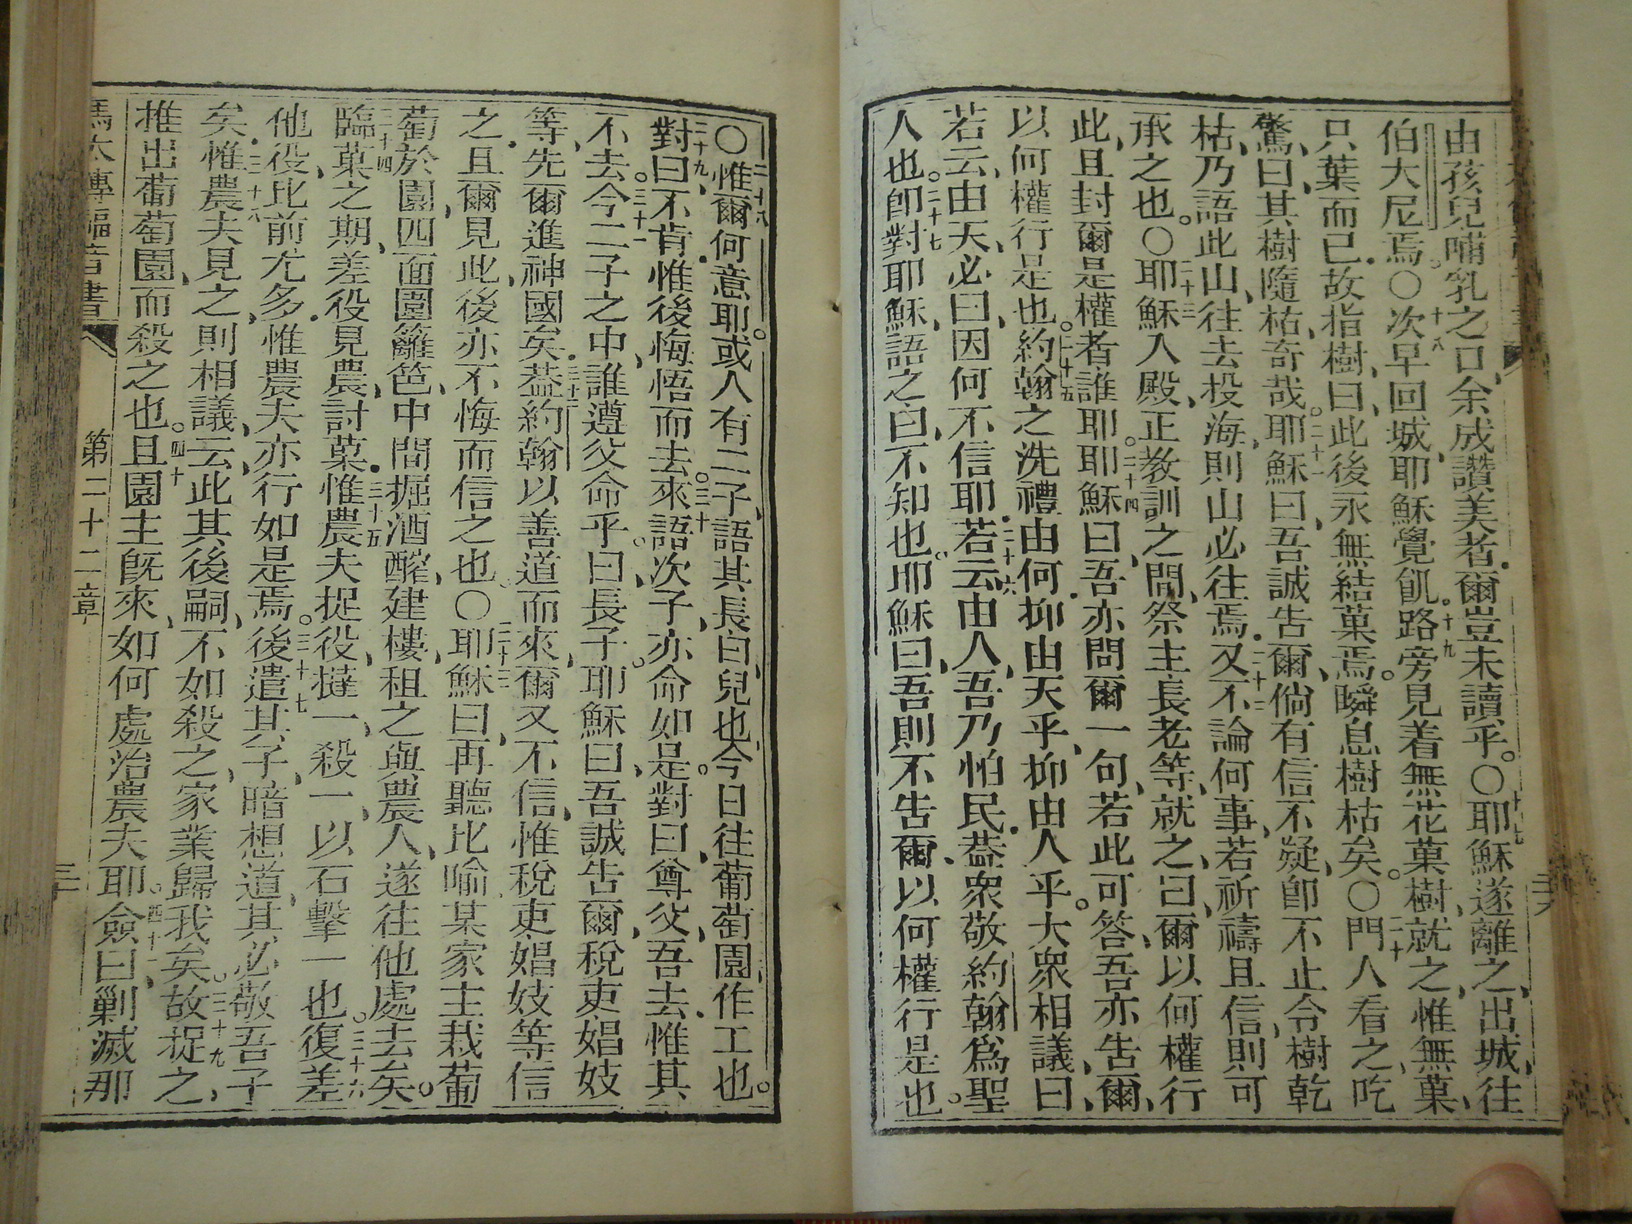 由孩兒哺乳之口余成讚美者爾豈未讀乎。〇十七耶穌遂離之出城往
伯大尼焉。〇十八次早回城耶穌覺飢。十九路旁見着無花菓樹就之惟無菓
只葉而已故指樹曰此後永無結菓焉。瞬息樹枯矣。〇二十門人看之吃
驚曰其樹隨枯奇哉。二十一耶穌曰吾誠告爾倘有信不疑卽不止令樹乾
枯乃語此山往去投海則山必往焉二十二又不論何事若祈禱且信則可
承之也。〇二十三耶穌入殿正教訓之間祭主長老等就之曰爾以何權行
此且封爾是權者誰耶。二十四耶穌曰吾亦問爾一句若此可答吾亦告爾
以何權行是也。二十五約翰之洗禮由何抑由天乎抑由人乎。大衆相議曰
若云由天必曰因何不信耶二十六若云由人吾乃怕民葢衆敬約翰爲聖
人也。二十七卽對耶穌語之曰不知也。耶穌曰吾則不告爾以何權行是也。
〇二十八惟爾何意耶。或人有二子語其長曰兒也今日往葡萄園作工也。
二十九對曰不肯惟後悔悟而去。三十來語次子亦命如是。對曰尊父吾去惟其
不去。三十一今二子之中誰遵父命乎。曰長子。耶穌曰吾誠告爾稅吏娼妓
等先爾進神國矣三十二葢約翰以善道而來爾又不信惟稅吏娼妓等信
之且爾見此後亦不悔而信之也。〇三十三耶穌曰再聽比喻某家主栽葡
萄於園四面圍籬笆中間掘酒醡建樓租之與農人遂往他處去矣。
三十四臨菓之期差役見農討菓三十五惟農夫捉役撻一殺一以石擊一也。三十六復差
他役比前尤多惟農夫亦行如是焉。三十七後遣其子暗想道其必敬吾子
矣三十八惟農夫見之則相議云此其後嗣不如殺之家業歸我矣。三十九故捉之
推出葡萄園而殺之也。四十且園主旣來如何處治農夫耶。四十一僉曰剿滅那
馬太傳福音書 第二十二章